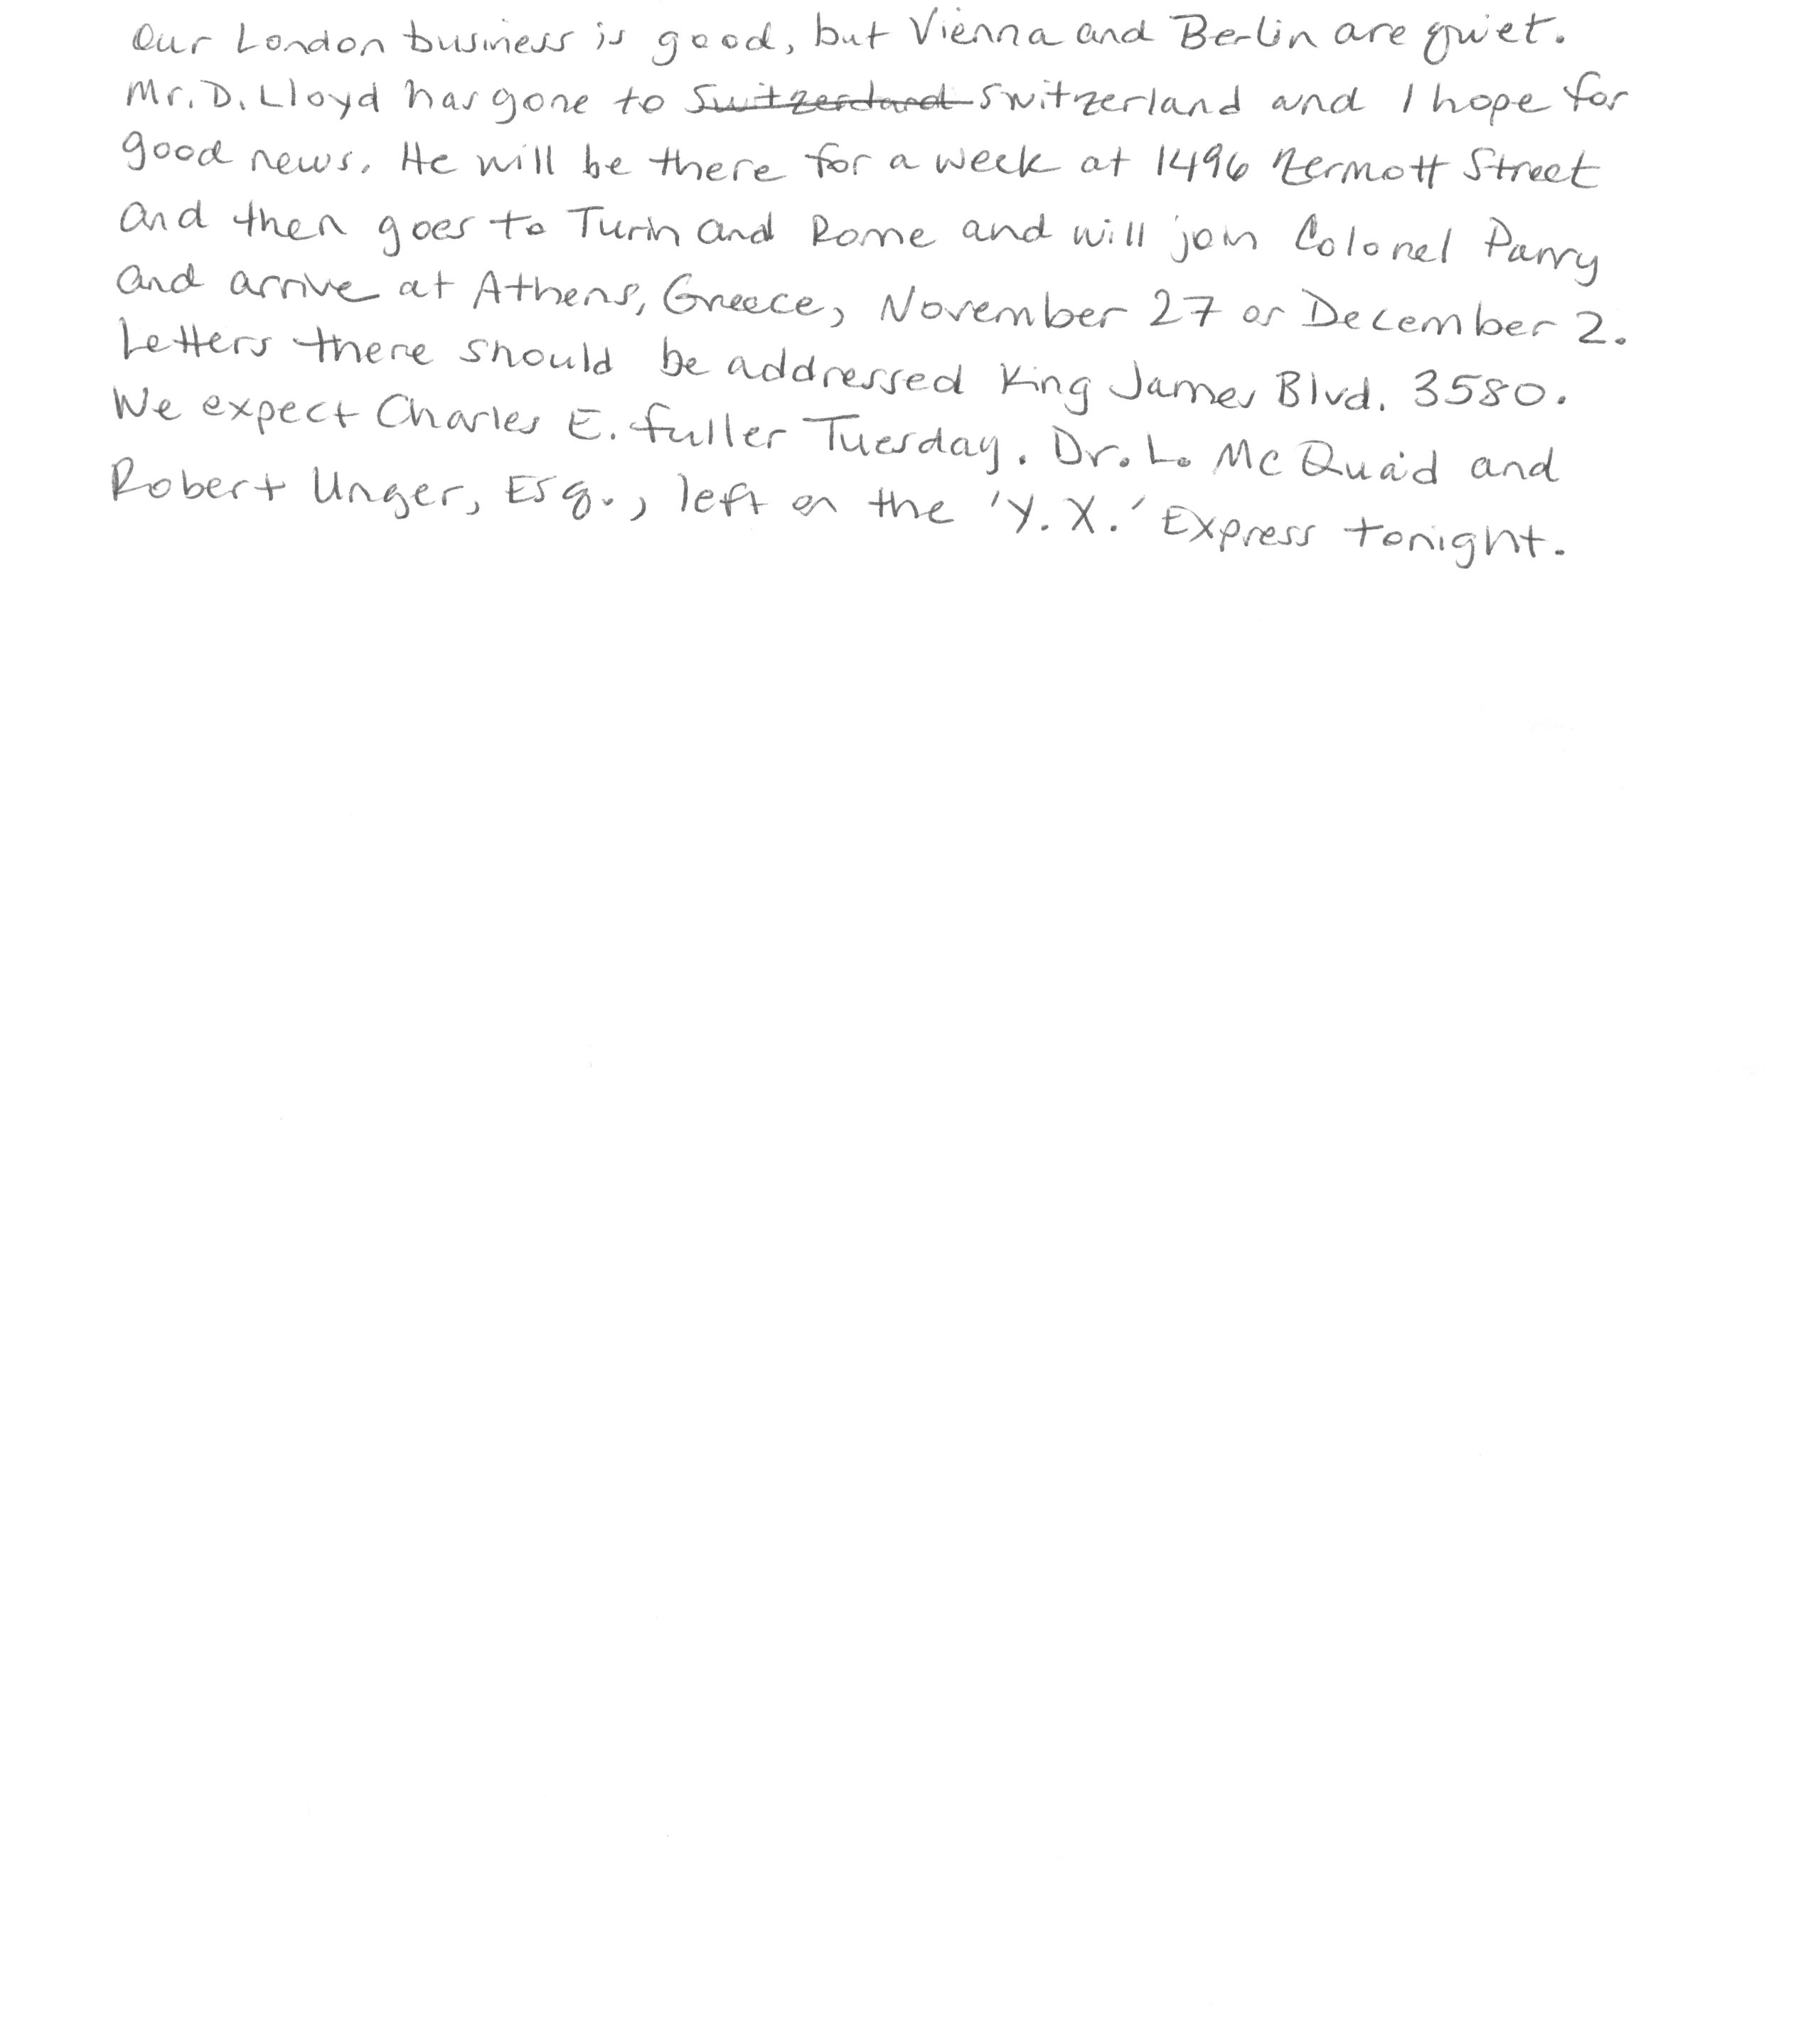 Our London business is good, but Vienna and Berlin are quiet.
Mr. D. Lloyd has gone to Switzerland Switzerland and I hope for
good news. He will be there for a week at 1496 Zermott Street
and then goes to Turin and Rome and will join Colonel Parry
and arrive at Athens, Greece, November 27 or December 2.
Letters there should be addressed King James Blvd. 3580.
We expect Charles E. Fuller Tuesday. Dr. L. McQuaid and
Robert Unger, Esq., left on the 'Y.X.' Express tonight.